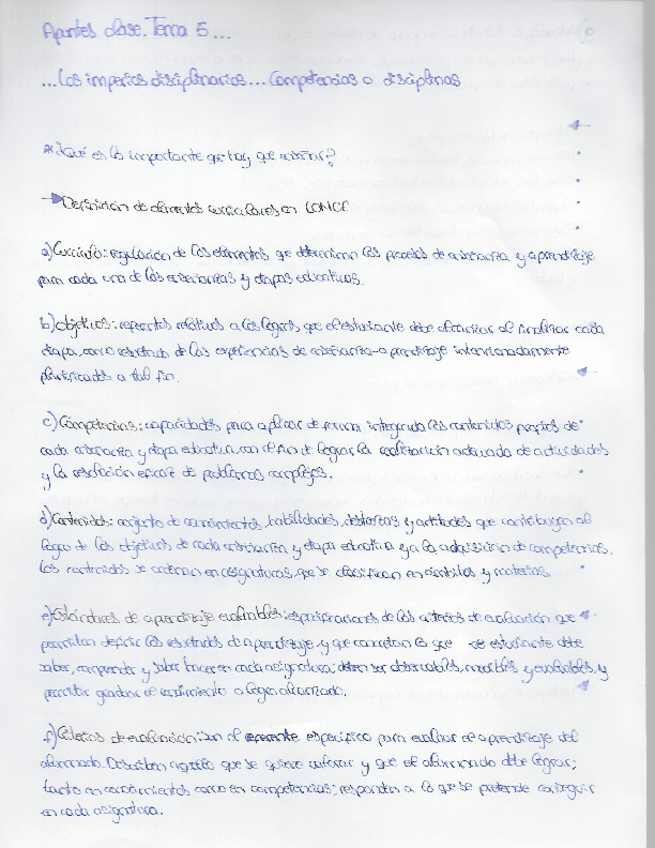 Apuntes clase. Tema 5...
...Los imperios disciplinarios... Competencias o disciplinas
* ¿Qué es lo importante que hay que enseñar?
Definición de elementos curriculares en LOMCE
a) Currículo: regulación de los elementos que determinan los procesos de enseñanza y aprendizaje
para cada una de las enseñanzas y etapas educativas.
b) Objetivos: referentes relativos a los logros que el estudiante debe alcanzar al finalizar cada
etapa, como resultado de las experiencias de enseñanza-aprendizaje intencionadamente
planificadas a tal fin.
c) Competencias: capacidades para aplicar de forma integrada los contenidos propios de
cada enseñanza y etapa educativa, con el fin de lograr la realización adecuada de actividades
y la resolución eficaz de problemas complejos.
d) Contenidos: conjunto de conocimientos, habilidades, destrezas y actitudes que contribuyen al
logro de los objetivos de cada enseñanza y etapa educativa y a la adquisición de competencias.
Los contenidos se ordenan en asignaturas, que se clasifican en ámbitos y materias.
e) Estándares de aprendizaje evaluables: especificaciones de los criterios de evaluación que
permiten definir los resultados de aprendizaje, y que concretan lo que el estudiante debe
saber, comprender y saber hacer en cada asignatura; deben ser observables, medibles y evaluables, y
permitir graduar el rendimiento o logro alcanzado.
f) Criterios de evaluación: son el referente específico para evaluar el aprendizaje del
alumnado. Describen aquello que se quiere valorar y que el alumnado debe lograr;
tanto en conocimientos como en competencias; responden a lo que se pretende conseguir
en cada asignatura.